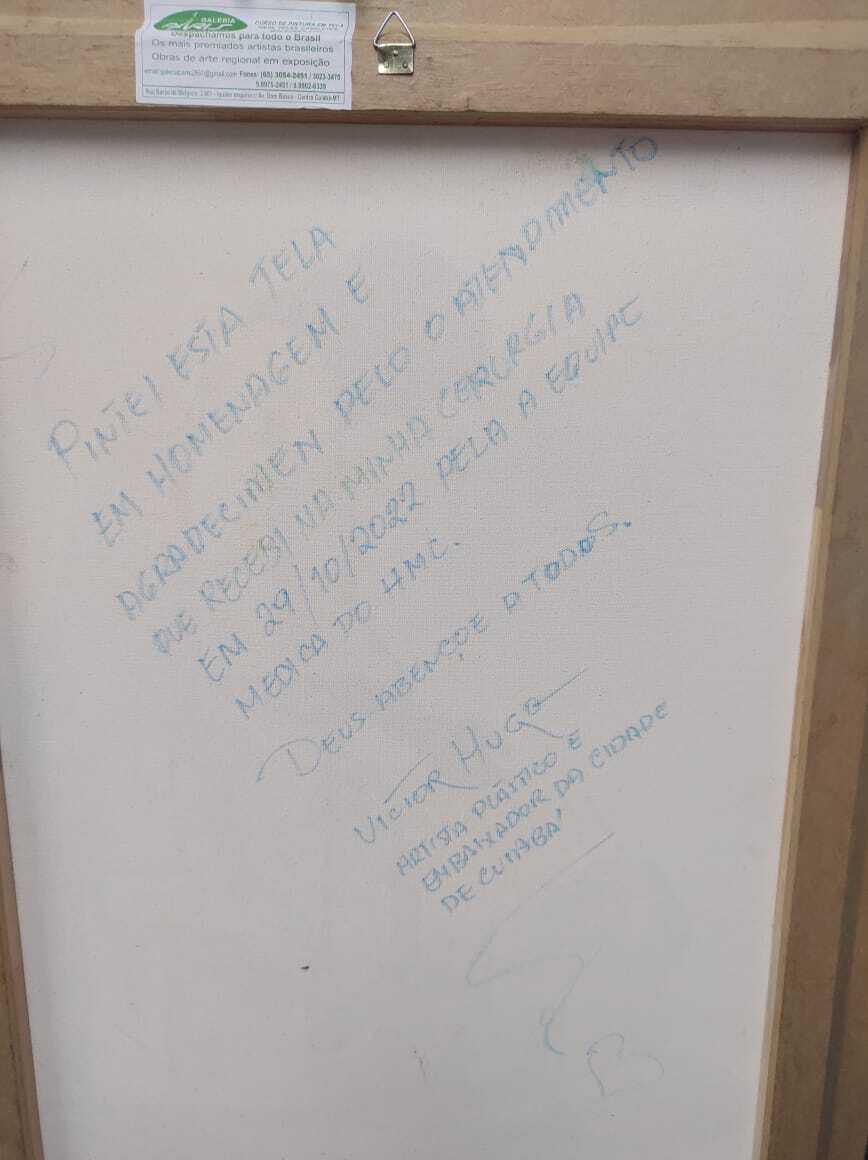 GALERIA
PÁRIS
CURSO DE PINTURA EM TELA
Despachamos para todo o Brasil
Os mais premiados artistas brasileiros
Obras de arte regional em exposição
Fones: (65) 3054-2451 / 3023-3475
PINTEI ESTA TELA
EM HOMENAGEM E
AGRADECIMEN PELO O ATENDIMENTO
QUE RECEBI NA MINHA CERURGIA
EM 29/10/2022 PELA A EQUIPE
MEDICA DO HMC.
DEUS ABENÇOE A TODOS.
VICTOR HUGO
ARTISTA PLÁSTICO E
EMBAIXADOR DA CIDADE
DE CUIABÁ